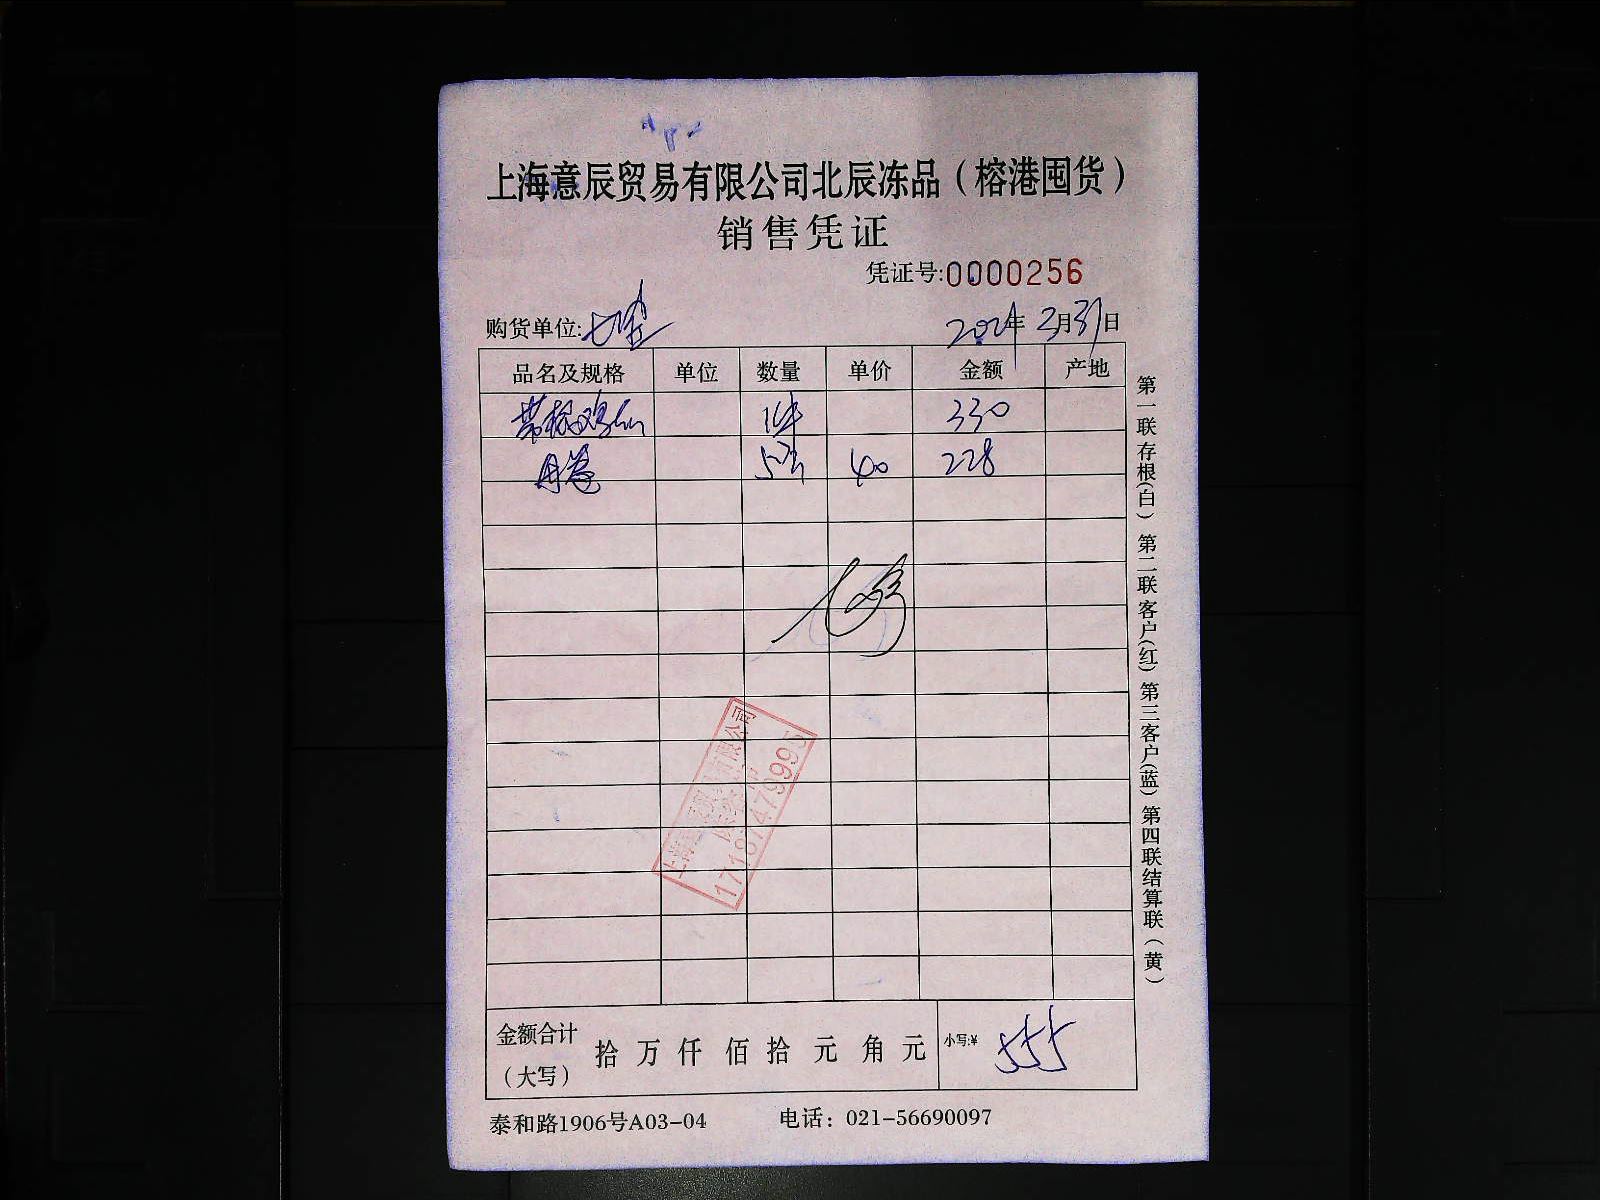 上海意辰贸易有限公司北辰冻品（榕港囤货）
销售凭证
凭证号:0000256
购货单位:
2024年3月31日
品名及规格 单位 数量 单价 金额 产地
1件 330
40 228
金额合计（大写） 拾 万 仟 佰 拾 元 角 元 小写:¥ 555
泰和路1906号A03-04 电话：021-56690097
第一联存根(白) 第二联客户(红) 第三客户(蓝) 第四联结算联（黄）
17187479995